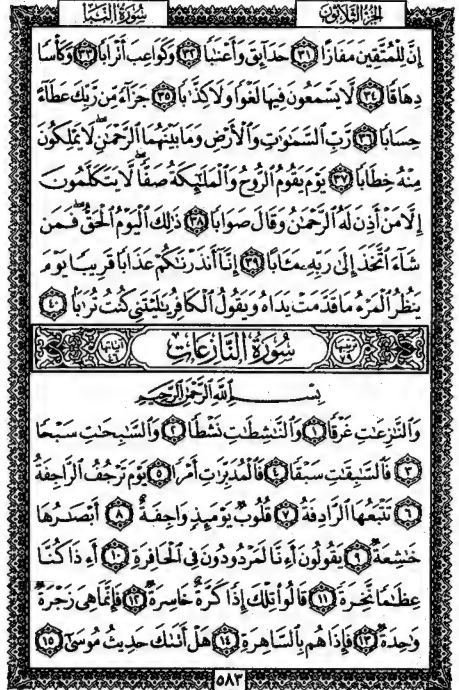 الجزء الثلاثون سورة النبإ
إِنَّ لِلْمُتَّقِينَ مَفَازًا ٣١ حَدَآئِقَ وَأَعْنَٰبًا ٣٢ وَكَوَاعِبَ أَتْرَابًا ٣٣ وَكَأْسًا
دِهَاقًا ٣٤ لَّا يَسْمَعُونَ فِيهَا لَغْوًا وَلَا كِذَّٰبًا ٣٥ جَزَآءً مِّن رَّبِّكَ عَطَآءً
حِسَابًا ٣٦ رَّبِّ ٱلسَّمَٰوَٰتِ وَٱلْأَرْضِ وَمَا بَيْنَهُمَا ٱلرَّحْمَٰنِ ۖ لَا يَمْلِكُونَ
مِنْهُ خِطَابًا ٣٧ يَوْمَ يَقُومُ ٱلرُّوحُ وَٱلْمَلَٰٓئِكَةُ صَفًّا ۖ لَّا يَتَكَلَّمُونَ
إِلَّا مَنْ أَذِنَ لَهُ ٱلرَّحْمَٰنُ وَقَالَ صَوَابًا ٣٨ ذَٰلِكَ ٱلْيَوْمُ ٱلْحَقُّ ۖ فَمَن
شَآءَ ٱتَّخَذَ إِلَىٰ رَبِّهِۦ مَـَٔابًا ٣٩ إِنَّآ أَنذَرْنَٰكُمْ عَذَابًا قَرِيبًا يَوْمَ
يَنظُرُ ٱلْمَرْءُ مَا قَدَّمَتْ يَدَاهُ وَيَقُولُ ٱلْكَافِرُ يَٰلَيْتَنِى كُنتُ تُرَٰبًۢا ٤٠
ترتيبها ٧٩ سورة النازعات آياتها ٤٦
بِسْمِ ٱللَّهِ ٱلرَّحْمَٰنِ ٱلرَّحِيمِ
وَٱلنَّٰزِعَٰتِ غَرْقًا ١ وَٱلنَّٰشِطَٰتِ نَشْطًا ٢ وَٱلسَّٰبِحَٰتِ سَبْحًا
٣ فَٱلسَّٰبِقَٰتِ سَبْقًا ٤ فَٱلْمُدَبِّرَٰتِ أَمْرًا ٥ يَوْمَ تَرْجُفُ ٱلرَّاجِفَةُ
٦ تَتْبَعُهَا ٱلرَّادِفَةُ ٧ قُلُوبٌ يَوْمَئِذٍ وَاجِفَةٌ ٨ أَبْصَٰرُهَا
خَٰشِعَةٌ ٩ يَقُولُونَ أَءِنَّا لَمَرْدُودُونَ فِى ٱلْحَافِرَةِ ١٠ أَءِذَا كُنَّا
عِظَٰمًا نَّخِرَةً ١١ قَالُوا۟ تِلْكَ إِذًا كَرَّةٌ خَاسِرَةٌ ١٢ فَإِنَّمَا هِىَ زَجْرَةٌ
وَٰحِدَةٌ ١٣ فَإِذَا هُم بِٱلسَّاهِرَةِ ١٤ هَلْ أَتَىٰكَ حَدِيثُ مُوسَىٰٓ ١٥
٥٨٣